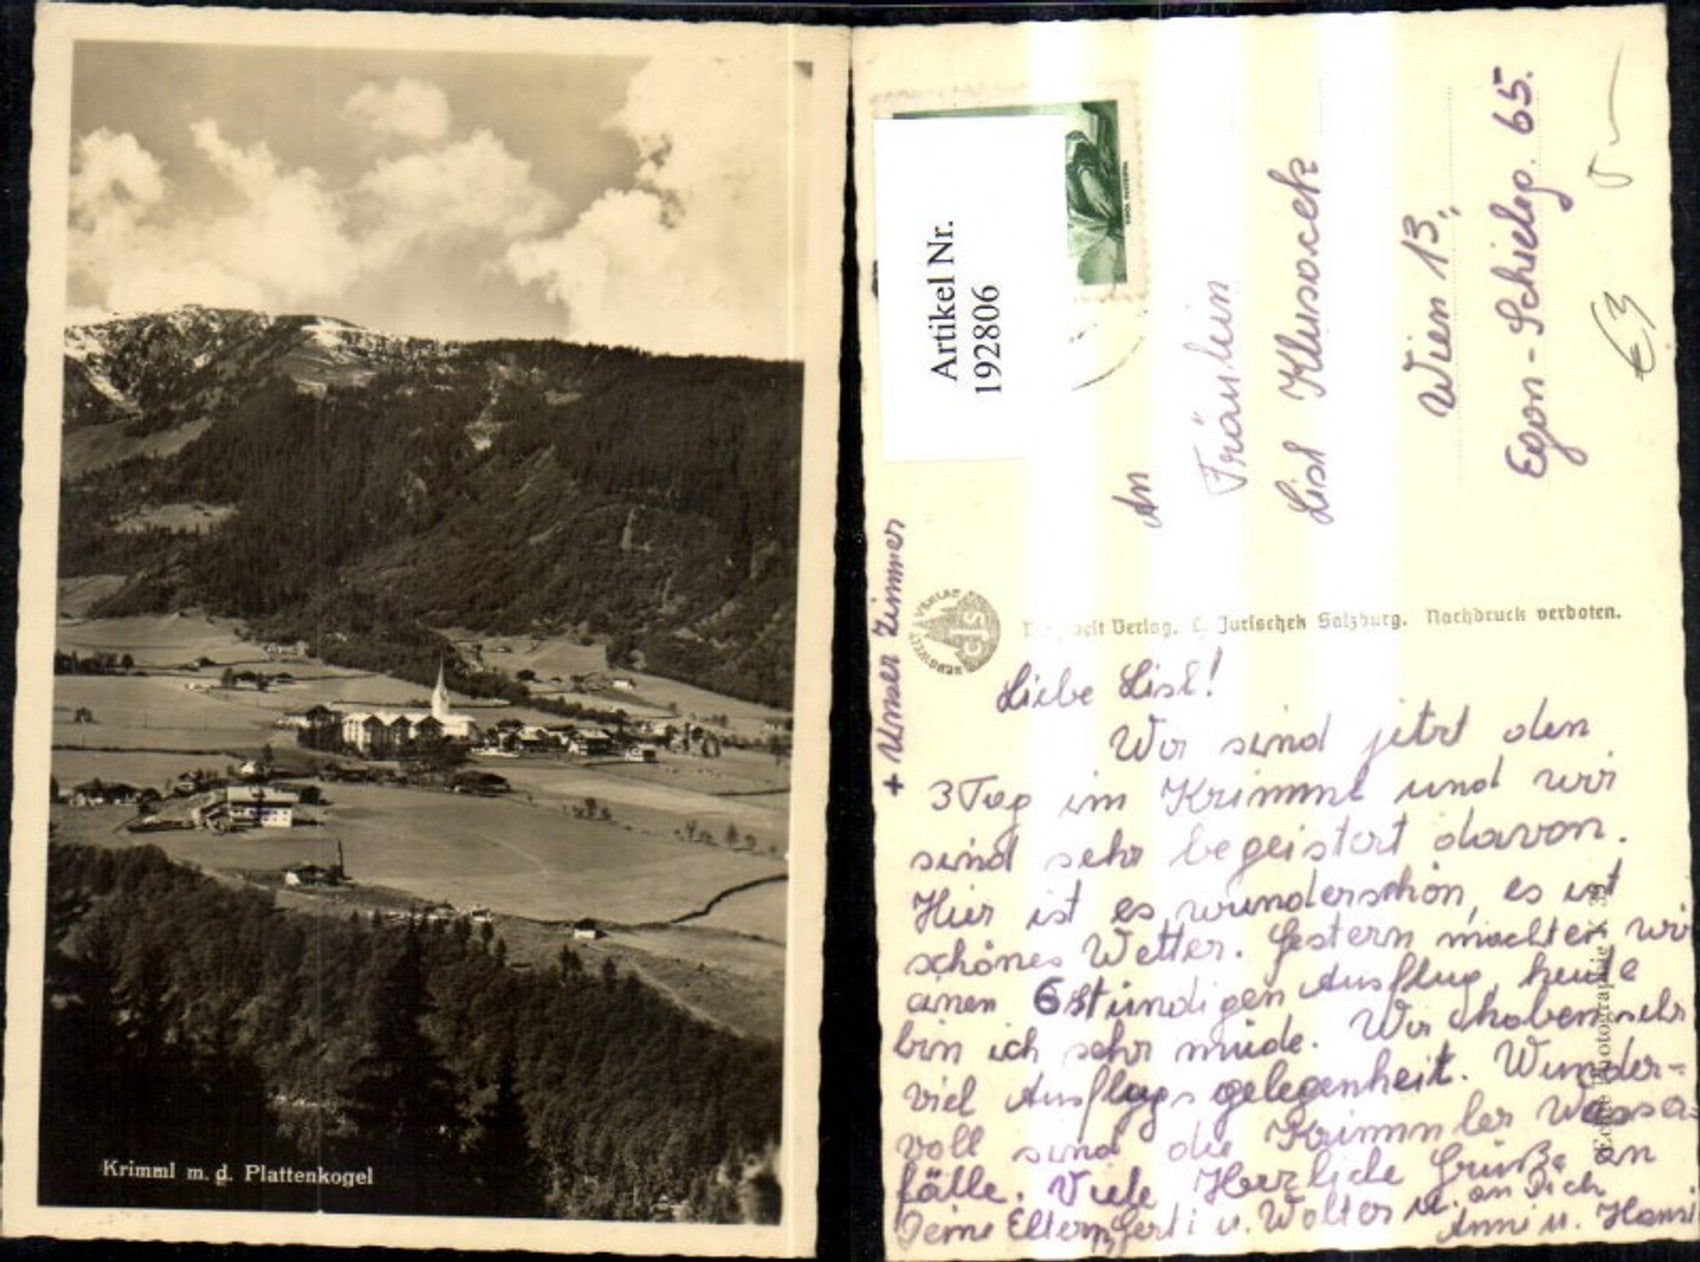 Krimml m. d. Plattenkogel
Artikel Nr.
192806
An
Fräulein
Lisl Klusacek
Wien 13.
Egon-Schieleg. 65.
€3
+ Unser Zimmer
VERLAG
Verlag. C. Jurischek Salzburg. Nachdruck verboten.
Liebe Lisl!
Wir sind jetzt den
3 Tag in Krimml und wir
sind sehr begeistert davon.
Hier ist es wunderschön, es ist
schönes Wetter. Gestern machten wir
einen 6 stündigen Ausflug, heute
bin ich sehr müde. Wir haben sehr
viel Ausflugsgelegenheit. Wunder-
voll sind die Krimmler Wasser
fälle. Viele Herzliche Grüße an
Deine Eltern, Gerti u. Walter u. an Dich
Anni u. Hansi